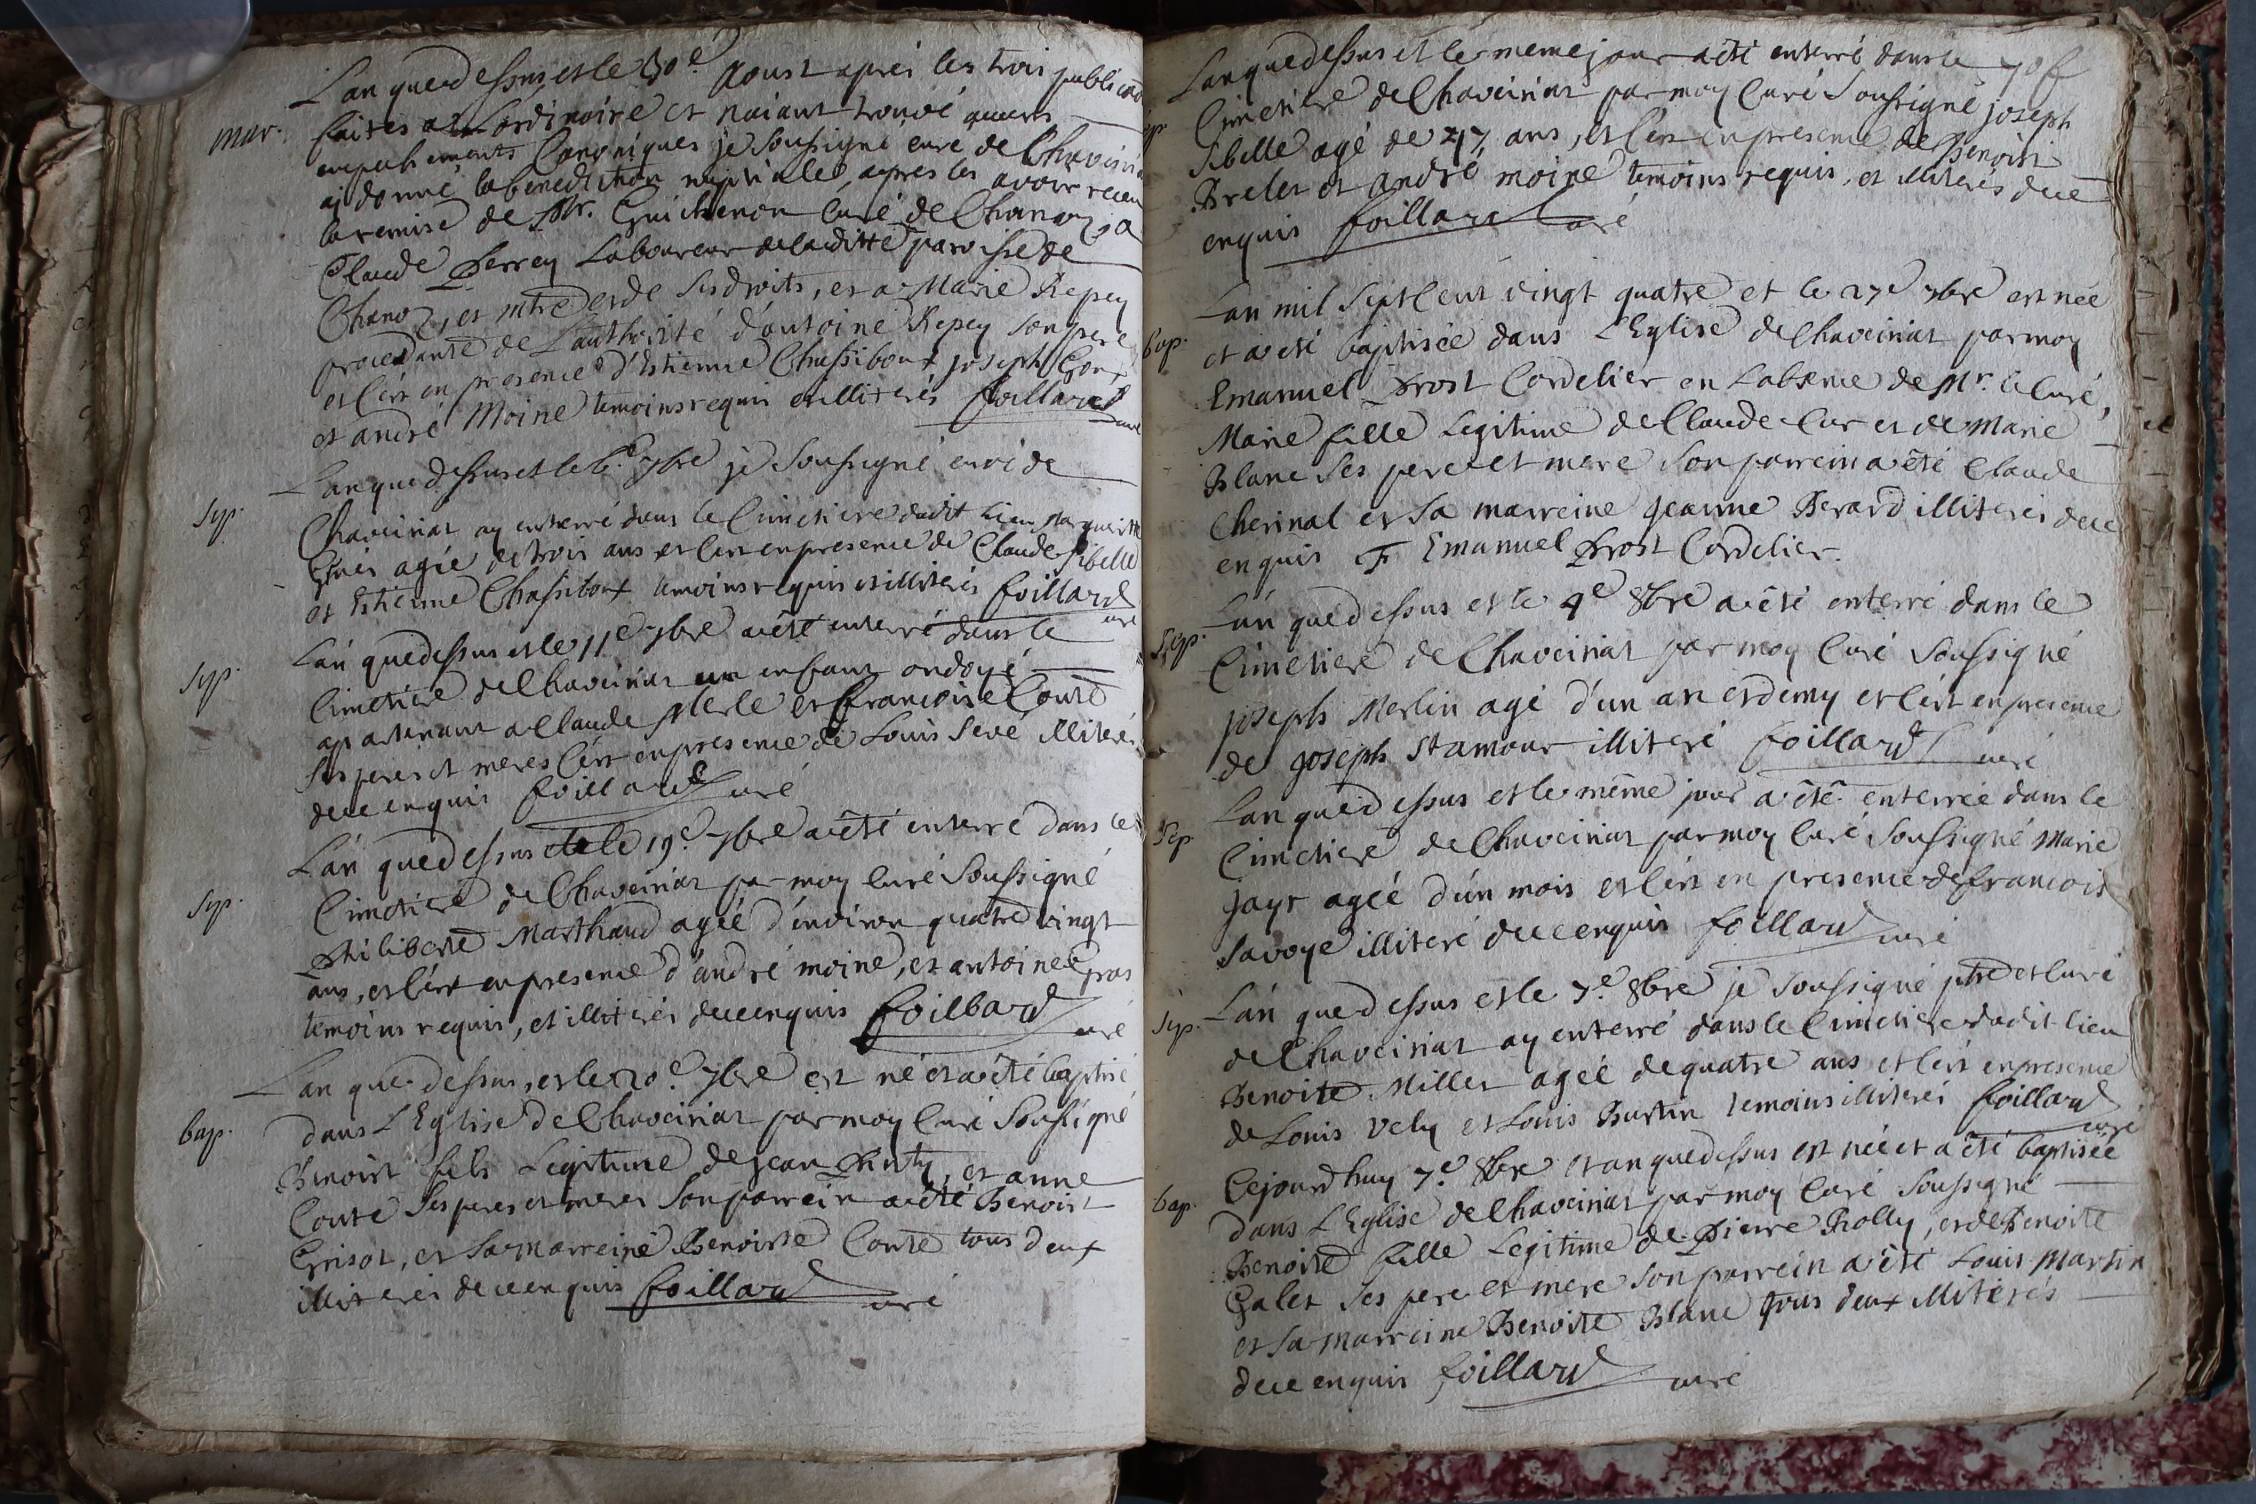 L'an que dessus et le 30e Aoust aprés les trois publicaõns
mar. faites a l'ordinoire et n'aiant trouvé aucuns
empechements Canoniques je soussigné curé de Chaveiriat
aj donné la benediction nuptiale, apres les avoir receu
la remise de Mr. Guichenon Curé de Chanoz, a
Claude Perrey Laboureur de laditte paroisse de
Chanoz, et mtre de ses droits, et a Marie Repey
procedante de L'authorité d'antoine Repey son pere
et c'est en presence d'Estienne Chassiboux joseph Goux
et andré Moine temoins requis et illiterés foillard curé
L'an que dessus et le 6e 7bre je soussigné curé de
sep. Chaveiriat ay enterré dans le Cimetiere dudit Lieu Marguerite
agée de trois ans et c'est en presence de Claude Sibelle
et Estienne Chassiboux temoins requis et illiterés foillard curé
L'an que dessus et le 11e 7bre a été enterré dans le
sep. Cimetiere de Chaveiriat un enfant ondoyé
apartenant a Claude Merle et françoise Conte
ses peres et meres c'est en presence de Louis Seve illiteré
de ce enquis foillard curé
L'an que dessus et le 19e 7bre a été enterré dans le
sep. Cimetiere de Chaveiriat par moy Curé Soussigné
Philiberte Marthaud agée d'environ quatre vingt
ans, et c'est en presence d'andré moine, et antoine pras
temoins requis, et illiterés de ce enquis foillard curé
L'an que dessus, et le 20e 7bre est né et a été baptisé
bap. dans L'Eglise de Chaveiriat par moy Curé Soussigné
Benoist fils Legitime de jean Pinty, et anne
Conte ses peres et meres son parrein a été Benoist
Grisot, et sa marreine Benoiste Conte tous deux
illiterés de ce enquis foillard curé
L'an que dessus et le meme jour a été enterré dans le 70f
sep. Cimetiere de Chaveiriat par moy Curé Soussigné joseph
Sibelle agé de 47 ans, et c'est en presence de Benoist
Brelet et André moine temoins requis, et illiterés de ce
enquis foillard Curé
L'an mil Sept Cent vingt quatre et le 27e 7bre est née
bap. et a été baptisée dans L'Eglise de Chaveiriat par moy
Emanuel Prost Cordelier en L'absence de Mr. le Curé,
Marie fille Legitime de Claude Cur et de Marie
Blanc ses pere et mere son parrein a été Claude
Cherinal et sa marreine jeanne Berard illiterés de ce
enquis F Emanuel Prost Cordelier.
L'an que dessus et le 4e 8bre a été enterré dans le
Sep. Cimetiere de Chaveiriat par moy Curé Soussigné
joseph Merlin agé d'un an et demy et c'est en presence
de joseph Stamour illiteré foillard curé
L'an que dessus et le même jour a été enterrée dans le
Sep Cimetiere de Chaveiriat par moy Curé Soussigné Marie
jayr agée d'un mois et c'est en presence de francois
Savoye illiteré de ce enquis foillard curé
L'an que dessus et le 7e 8bre je Soussigné ptre et Curé
sep. de Chaveiriat ay enterré dans le Cimetiere dudit lieu
Benoite Millet agée de quatre ans et c'est en presence
de Louis Vely et Louis Burtin temoins illiterés foillard curé
Cejourd'huy 7e 8bre et an que dessus est née et a été baptisée
bap. dans L'Eglise de Chaveiriat par moy Curé Soussigné
Benoite fille Legitime de Pierre Rolly, et de Benoite
Galet ses pere et mere son parrein a été Louis Martin
et sa marreine Benoite Blanc tous deux illiterés
de ce enquis foillard curé